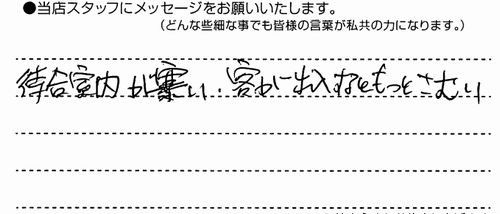 ●当店スタッフにメッセージをお願いいたします。
(どんな些細な事でも皆様の言葉が私共の力になります。)
待合室内が寒い、客が出入
もっとさむい